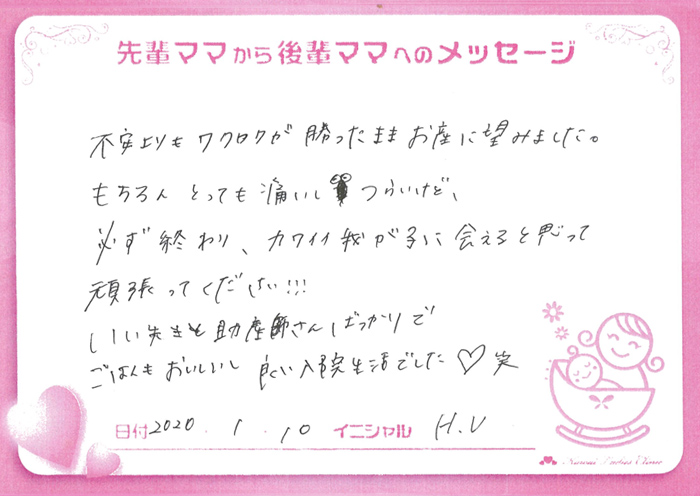 先輩ママから後輩ママへのメッセージ
不安よりもワクワクが勝ったままお産に望みました。
もちろんとっても痛いしつらいけど、
必ず終わり、カワイイ我が子に会えると思って
頑張ってください!!!
いい先生も助産師さんばっかりで
ごはんもおいしいし良い入院生活でした♡笑
日付 2020 . 1 . 10 イニシャル H.U